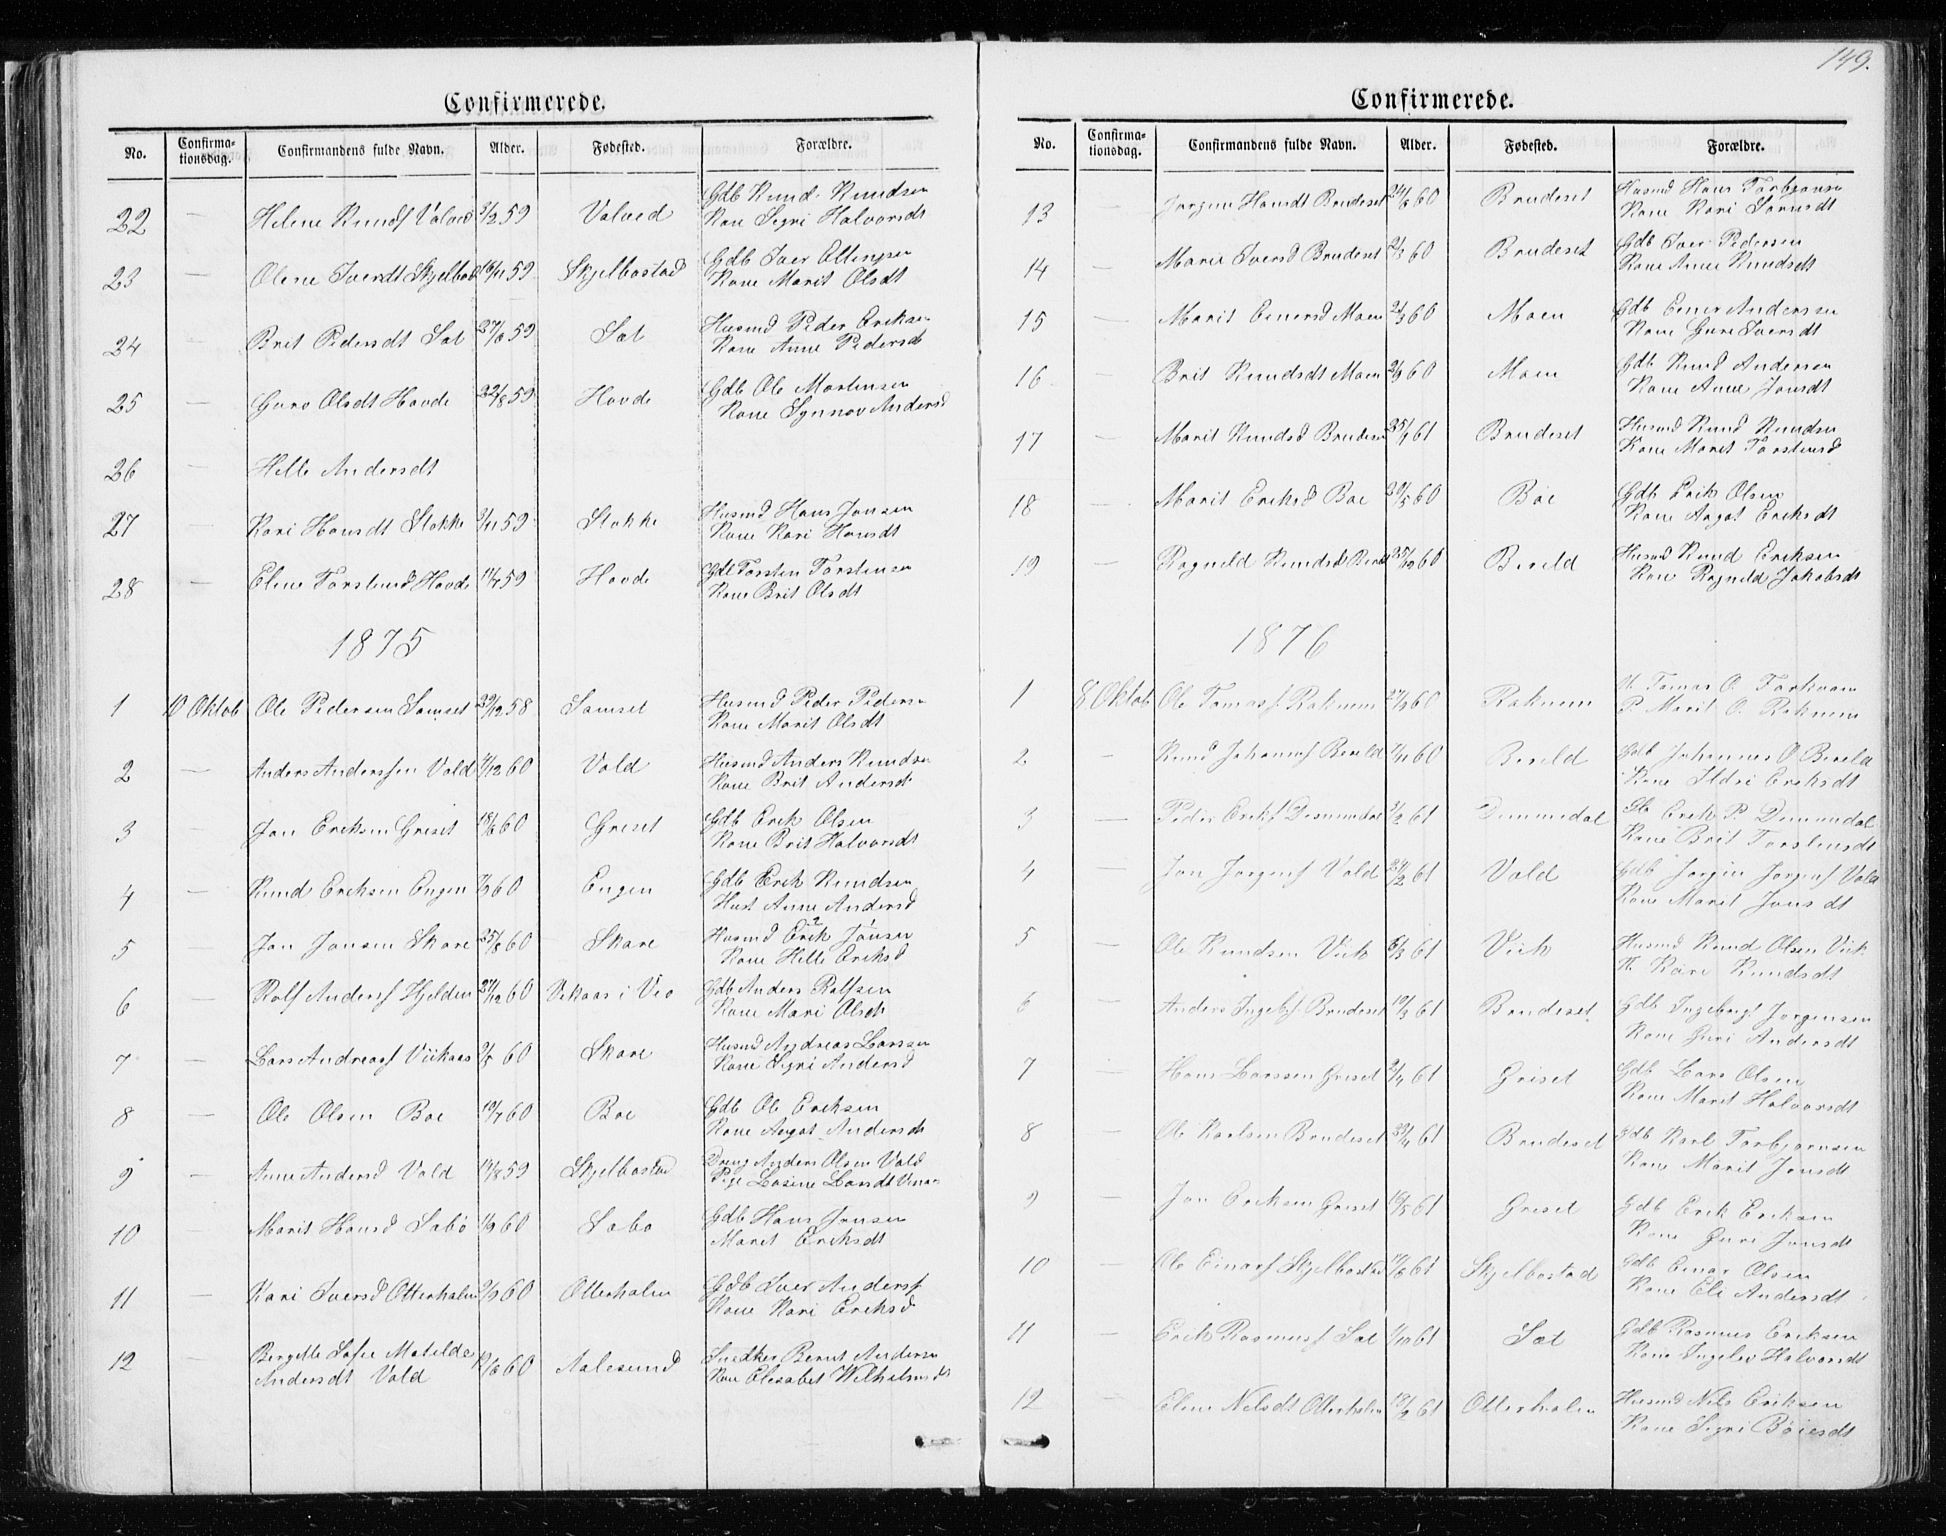 149.
Confirmerede.
No. Confirma-tionsdag. Confirmandens fulde Navn. Alder. Fødested. Forældre.
22 — Helene Knuds Valved 3/2 59 Valved Gdb Knud Knudsen
Kone Sigri Halvorsdt
23 — Olene Iversdt Skjelbost 16/11 59 Skjelbostad Gdb Iver Ottingsen
Kone Marit Olsdt
24 — Brit Pedersdt Sæt 27/8 59 Sæt Husmd Peder Eriksen
Kone Anne Pedersdt
25 — Guro Olsdt Hovde 22/8 59 Hovde Gdb Ole Mortensen
Kone Synnov Andersd
26 — Helle Andersdt
27 — Kari Hansdt Stokke 3/11 59 Stokke Husmd Hans Jonsen
Kone Kari Hansdt
28 — Eline Torstensd Hovde 14/7 59 Hovde Gdb Torsten Torstensen
Kone Brit Olsdt
1875
1 10 Oktob Ole Pedersen Samset 29/12 58 Samset Husmd Peder Pedersen
Kone Marit Olsdt
2 — Anders Anderssen Vold /12 60 Vold Husmd Anders Knudsen
Kone Brit Andersdt
3 — Jon Eriksen Griset 18/6 60 Griset Gdb Erik Olsen
Kone Brit Halvorsdt
4 — Knud Eriksen Engen 60 Engen Gdb Erik Knudsen
Hust Anne Andersd
5 — Jon Jonsen Skare 25/8 60 Skare Husmd Erik Jonsen
Kone Helle Eriksd
6 — Rolf Anders Hjelden 27/12 60 Vikaas i Veo Gdb Anders Rolfsen
Kone Mari Olsdt
7 — Lars Andreass Viikaas 60 Skare Husmd Andreas Larssen
Kone Sigri Andersd
8 — Ole Olsen Boe 19/7 60 Boe Gdb Ole Eriksen
Kone Aagot Andersdt
9 — Anne Andersd Vold 14/8 59 Skjelbostad Dreng Anders Olsen Vold
Pige Lasine Larsdt
10 — Marit Hansd Sabø 1/9 60 Sabo Gdb Hans Jonsen
Marit Eriksdt
11 — Kari Iversd Otterhalen 60 Otterhalen Gdb Iver Anderss
Kone Kari Eriksd
12 — Bergitte Sofie Matilde
Andersdt Vold 12/8 60 Aalesund Snedker Bernt Andersen
Kone Elesabet Wilhelmsdt
Confirmerede.
No. Confirma-tionsdag. Confirmandens fulde Navn. Alder. Fødested. Forældre.
13 — Jorgine Hansdt Brudeset 24/6 60 Brudeset Husmd Hans Torbjonsen
Kone Kari Larsdt
14 — Marie Iversd Brudeset 2/3 60 Brudeset Gdb Iver Pedersen
Kone Anne Knudsdt
15 — Marit Einersd Moen 2/3 60 Moen Gdb Einer Anderssen
Kone Guri Iversdt
16 — Brit Knudsdt Moen 2/9 60 Moen Gdb Knud Andersen
Kone Anne Jonsdt
17 — Marit Knudsd Brudeset 25/1 61 Brudeset Husmd Knud Knudsen
Kone Marit Torstensd
18 — Marit Eriksd Boe 29/5 60 Böe Gdb Erik Olsen
Kone Aagot Eriksdt
19 — Ragnild Knudsd Berild 25/10 60 Berild Husmd Knud Eriksen
Kone Ragnild Jakobsdt
1876
1 8 Oktob Ole Tomass Raknem 27/9 60 Raknem U. Tomas O. Torkvam
P. Marit O. Raknem
2 — Knud Johanness Berild 7/11 60 Berild Gdb Johannes O Berild
Kone Ildri Eriksdt
3 — Peder Eriks Demmedal 3/2 61 Demmedal Gdb Erik P. Demmedal
Kone Brit Torstensdt
4 — Jon Jorgens Vold 24/2 61 Vold Gdb Jorgen Jorgens Vold
Kone Marit Jonsdt
5 — Ole Knudsen Viik 6/3 61 Viik Husmd Knud Olsen Viik
K. Kari Knudsdt
6 — Anders Ingebs Brudeset 19/3 61 Brudeset Gdb Ingebrigt Jorgensen
Kone Guri Andersdt
7 — Hans Larssen Griset 2/4 61 Griset Gdb Lars Olsen
Kone Marit Halvorsdt
8 — Ole Karlsen Brudeset 23/4 61 Brudeset Gdb Karl Torbjornsen
Kone Marit Jonsdt
9 — Jon Eriksen Griset 19/5 61 Griset Gdb Erik Eriksen
Kone Guri Jonsdt
10 — Ole Einars Skjelbostad 17/6 61 Skjelbostad Gdb Einar Olsen
Kone Eli Andersdt
11 — Erik Rasmuss Sæt 1/10 61 Sæt Gdb Rasmus Eriksen
Kone Ingelev Halvorsdt
12 — Eline Nilsdt Otterhalen 19/2 61 Otterhalen Husmd Nils Eriksen
Kone Sigri Böiesdt